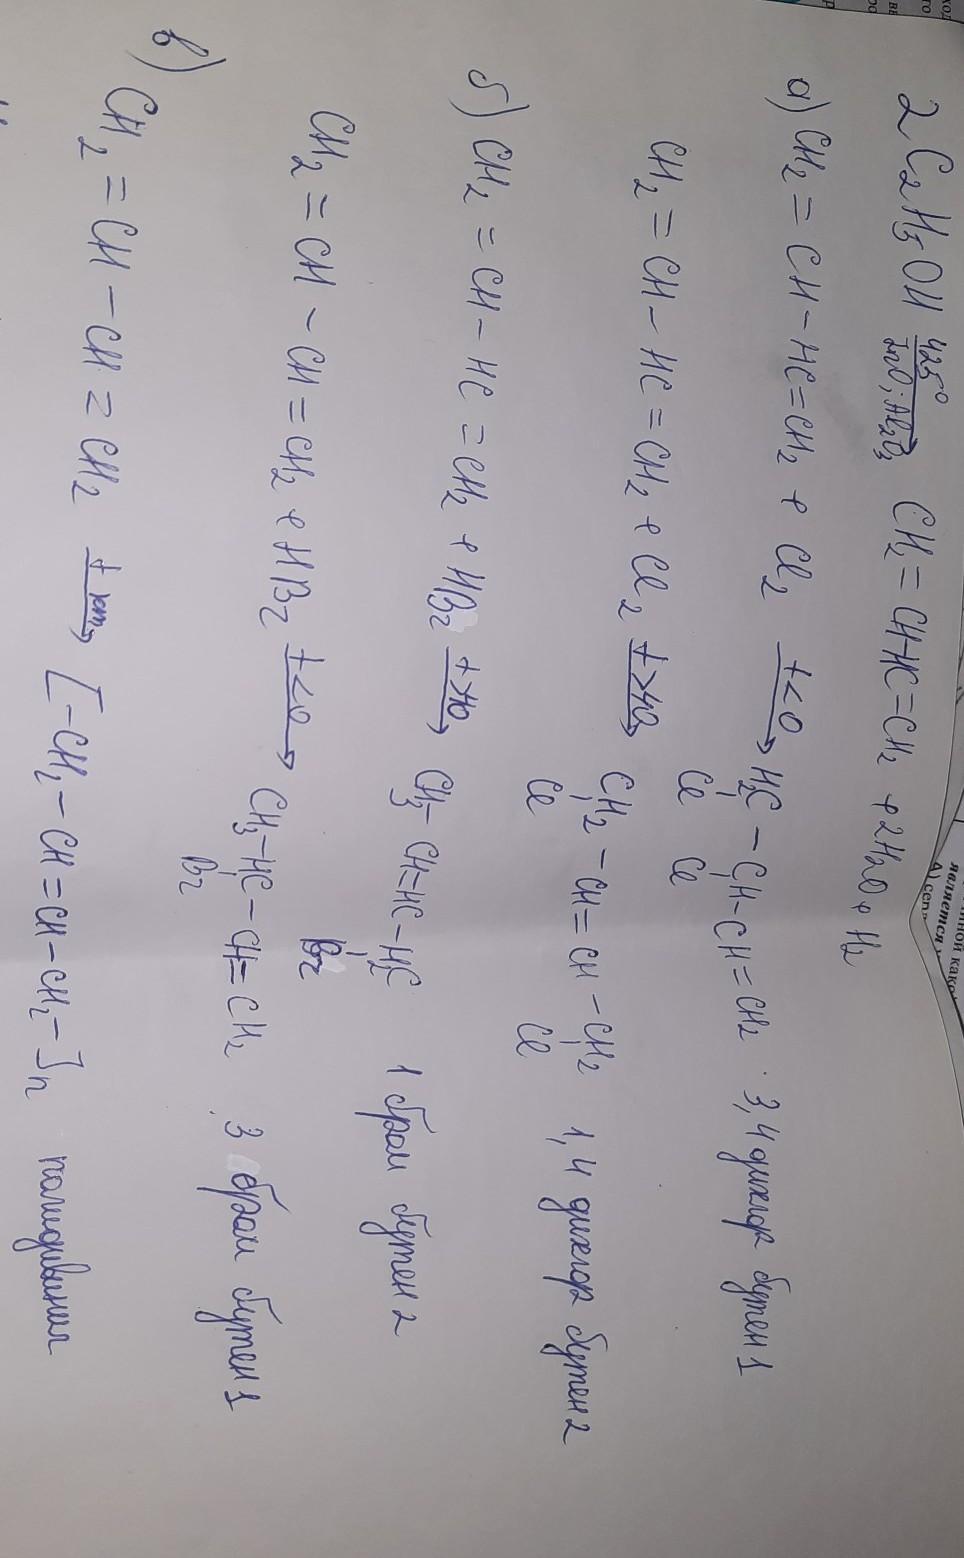 2 C₂H₅OH 425° ZnO; Al₂O₃ → CH₂ = CH-HC=CH₂ + 2H₂O + H₂
а) CH₂ = CH - HC=CH₂ + Cl₂ t<0 → H₂C - CH - CH = CH₂ 3,4 дихлор бутен 1
Cl Cl
CH₂ = CH - HC = CH₂ + Cl₂ t>40 → CH₂ - CH = CH - CH₂ 1,4 дихлор бутен 2
Cl Cl
б) CH₂ = CH - HC = CH₂ + HBr t>40 → CH₃ - CH=HC - H₂C 1 бром бутен 2
Br
CH₂ = CH - CH = CH₂ + HBr t<0 → CH₃-HC - CH= CH₂ 3 бром бутен 1
Br
в) CH₂ = CH - CH = CH₂ t кат → [-CH₂ - CH = CH - CH₂ - ]n полидивинил
является